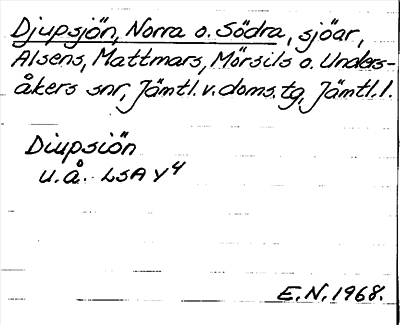 Djupsjön, Norra o. Södra, sjöar,
Alsens, Mattmars, Mörsils o. Unders-
åkers snr, Jämtl. v. doms. tg, Jämtl. l.
Diupsiön
u. å. LSA Y4
E.N. 1968.